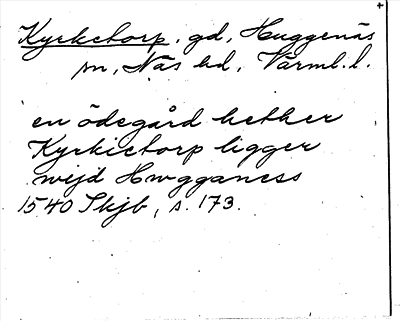 Kyrketorp, gd, Huggenäs
sn, Näs hd, Värml. l.
en ödegård hether
Kyrkietorp ligger
wijd Hwgganess
1540 Skjb, s. 173.